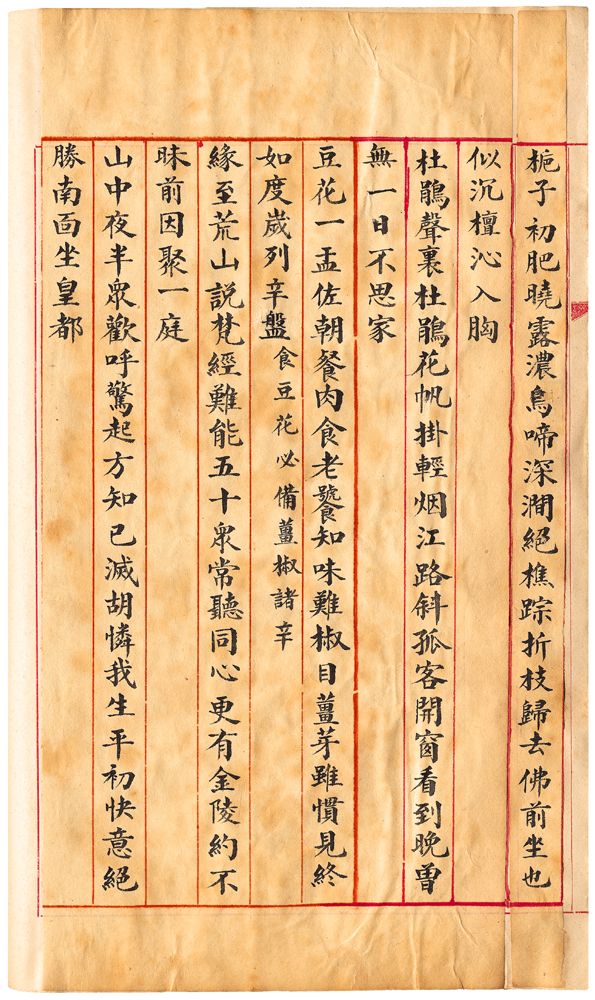 梔子初肥曉露濃鳥啼深澗絕樵踪折枝歸去佛前坐也
似沉檀沁入胸
杜鵑聲裏杜鵑花帆掛輕烟江路斜孤客開窗看到晚曾
無一日不思家
豆花一盂佐朝餐肉食老饕知味難椒目薑芽雖慣見終
如度嵗列辛盤食豆花必備薑椒諸辛
緣至荒山説梵經難能五十眾常聽同心更有金陵約不
昧前因聚一庭
山中夜半眾歡呼驚起方知已滅胡憐我生平初快意絕
勝南面坐皇都